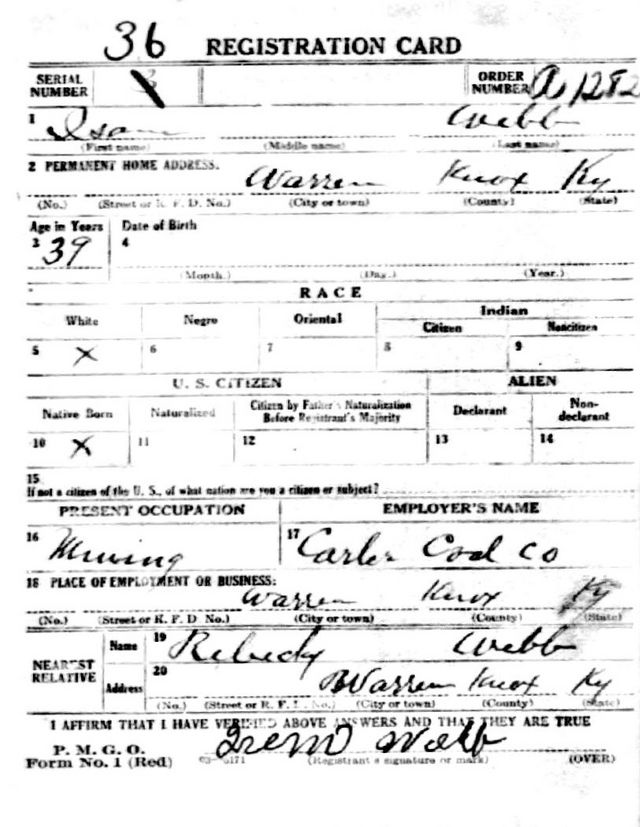 36 REGISTRATION CARD
SERIAL NUMBER 3 ORDER NUMBER A 1282
1 Isam Webb
(First name) (Middle name) (Last name)
2 PERMANENT HOME ADDRESS. Warren Knox Ky
(No.) (Street or R. F. D. No.) (City or town) (County) (State)
Age in Years Date of Birth
3 39 4
(Month.) (Day.) (Year.)
RACE
White Negro Oriental Indian
Citizen Noncitizen
5 X 6 7 8 9
U. S. CITIZEN ALIEN
Native Born Naturalized Citizen by Father's Naturalization Before Registrant's Majority Declarant Non-declarant
10 X 11 12 13 14
15
If not a citizen of the U. S., of what nation are you a citizen or subject?
PRESENT OCCUPATION EMPLOYER'S NAME
16 Mining 17 Carter Coal Co
18 PLACE OF EMPLOYMENT OR BUSINESS:
Warren Knox Ky
(No.) (Street or R. F. D No.) (City or town) (County) (State)
NEAREST RELATIVE Name 19 Rebecky Webb
Address 20 Warren Knox Ky
(No.) (Street or R. F. D. No.) (City or town) (County) (State)
I AFFIRM THAT I HAVE VERIFIED ABOVE ANSWERS AND THAT THEY ARE TRUE
P. M. G. O.
Form No. 1 (Red) 03-6171 (Registrant's signature or mark) (OVER)
Webb